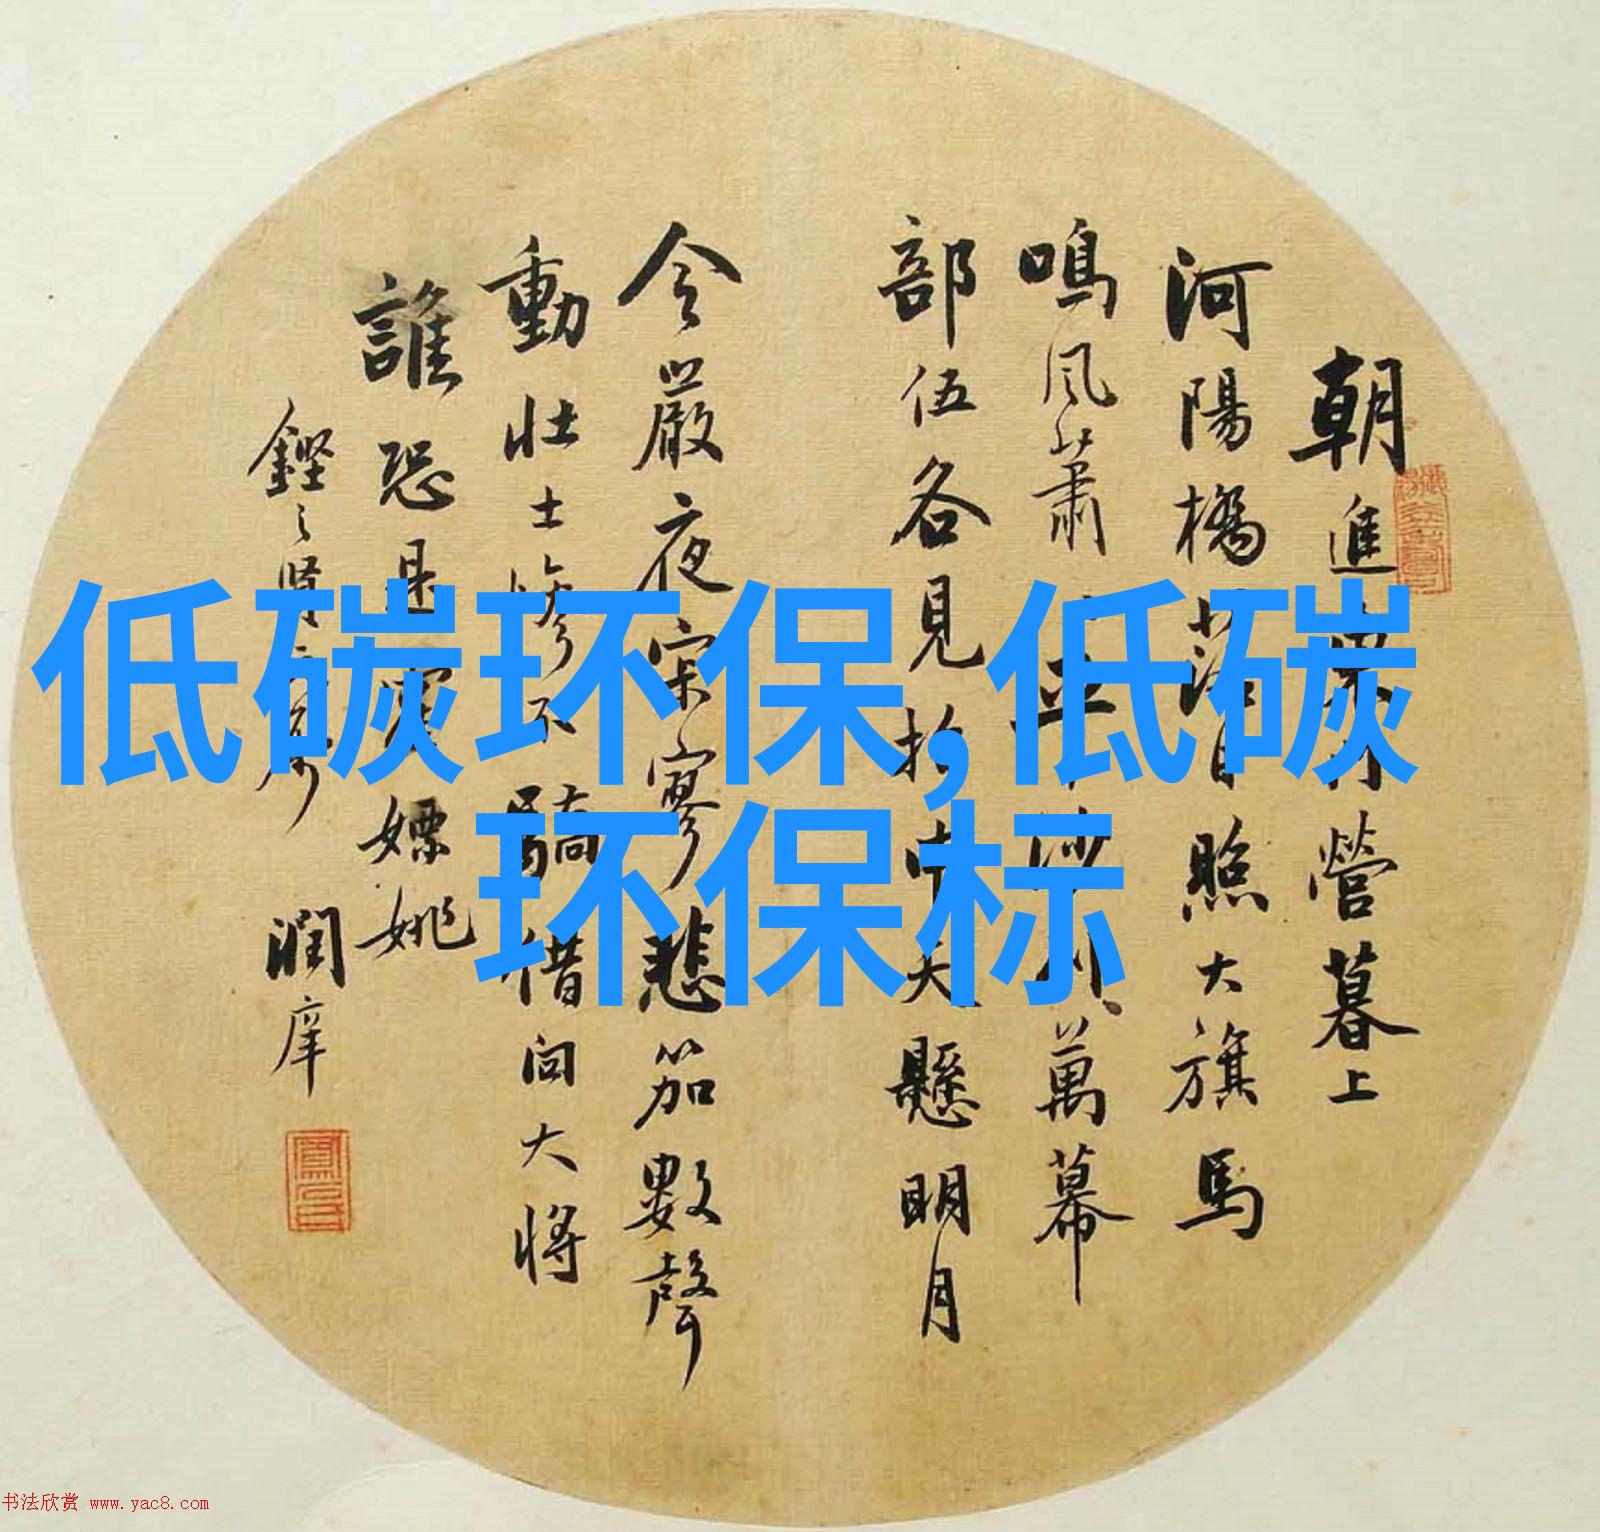 低碳环保,低碳
环保标
朝進營暮上
河陽橋落日照大旗馬
鳴風蕭平沙列萬幕
部伍各見招中天懸明月
令嚴夜寂寥悲笳數聲
動壯士慘不驕借問大將
誰恐是霍嫖姚
潤庠
书法欣赏 www.yac8.com